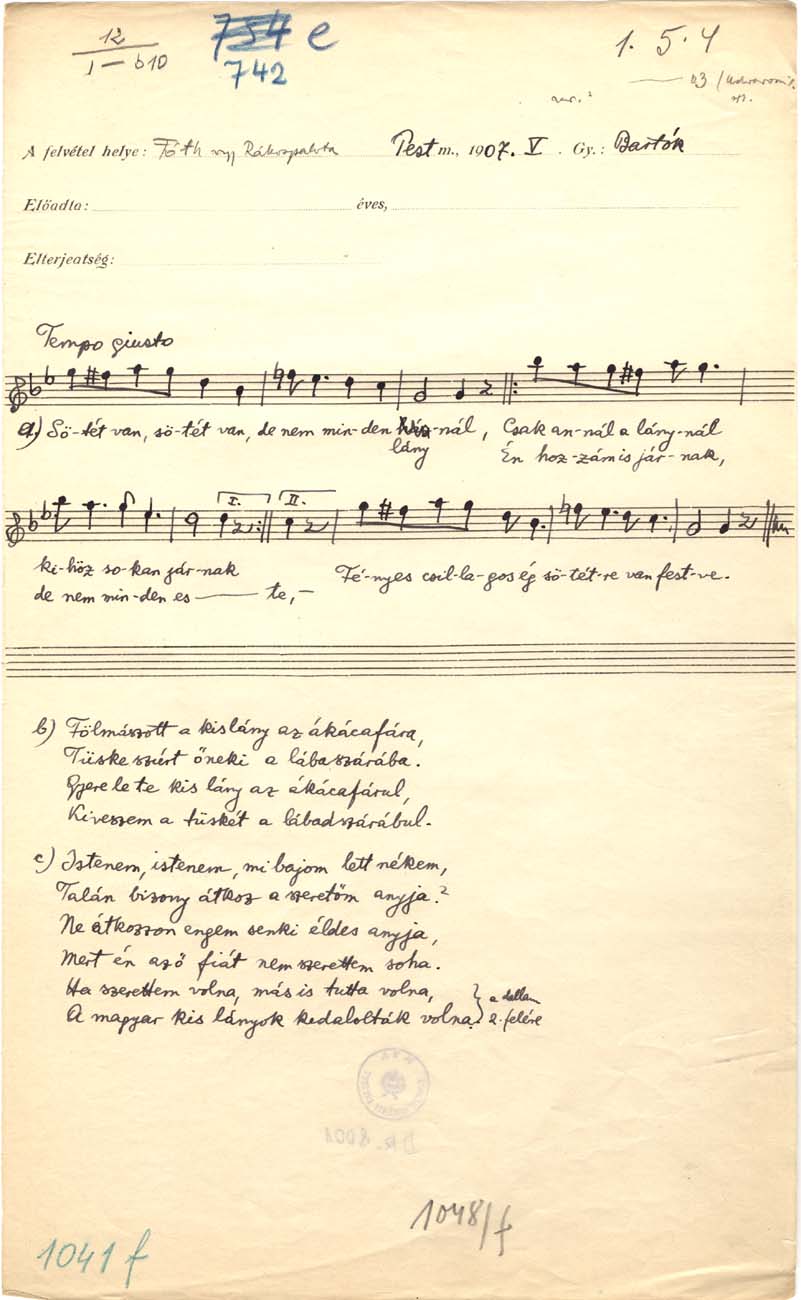 12
I — b10
754 e
742
1. 5. 4
A felvétel helye: Fóth vgy Rákospalota Pest m., 1907. V. Gy.: Bartók
Előadta: éves,
Elterjedtség:
Tempo giusto
a) Sö-tét van, sö-tét van, de nem min-den ház-nál, Csak an-nál a lány-nál
lány Én hoz-zám is jár-nak,
I. II.
ki-höz so-kan jár-nak Fé-nyes csil-la-gos ég sö-tét-re van fest-ve.
de nem min-den es — te,–
b) Fölmászott a kislány az ákácafára,
Tüske szúrt őneki a lábaszárába.
Gyere le te kis lány az ákácafárul,
Kiveszem a tüskét a lábadszárábul.
c) Istenem, istenem, mi bajom lett nékem,
Talán bizony átkoz a szeretőm anyja?
Ne átkozzon engem senki éldes anyja,
Mert én az ő fiát nem szerettem soha.
Ha szerettem volna, más is tutta volna, } a dallam
A magyar kis lányok kidalolták volna. 2. felére
1048/f
1041 f